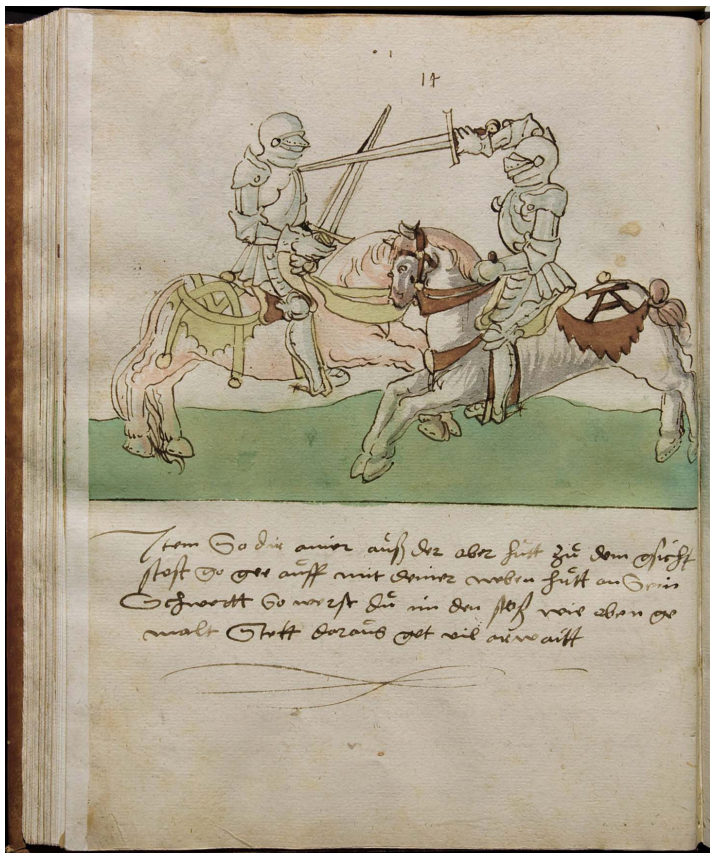 14
Item So dir ainer auß der ober hůtt zů dem gsicht
stost So gee auff mit deiner neben hůtt an Sein
Schwertt So werst dů im den stoß wie oben ge
malt Stett daraůs get vil arwaitt